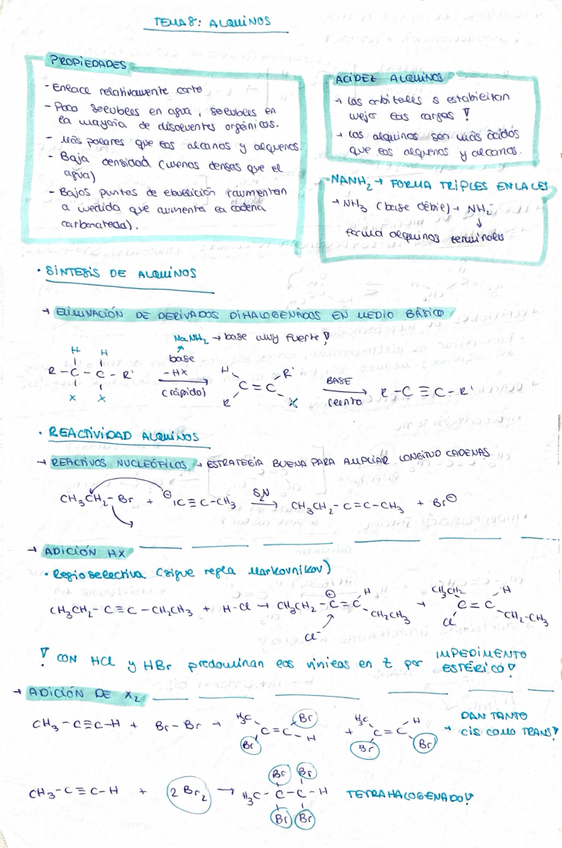 TEMA 8: ALQUINOS
PROPIEDADES
- Enlace relativamente corto
- Poco solubles en agua, solubles en
la mayoría de disolventes orgánicos.
- Más polares que los alcanos y alquenos.
- Baja densidad (menos densos que el
agua)
- Bajos puntos de ebullición (aumentan
a medida que aumenta la cadena
carbonatada).
ACIDEZ ALQUINOS
→ Los orbitales s estabilizan
mejor las cargas!
→ Los alquinos son más ácidos
que los alquenos y alcanos.
- NANH₂ → FORMA TRIPLES ENLACES
→ NH₃ (base débil) → NH₂⁻
↓
forma alquinos terminales
· SÍNTESIS DE ALQUINOS
→ ELIMINACIÓN DE DERIVADOS DIHALOGENADOS EN MEDIO BÁSICO
NaNH₂ → base muy fuerte!
H H
base
R-C-C-R' -HX H R' BASE
(rápido) C=C (lento) R-C≡C-R'
X X R X
· REACTIVIDAD ALQUINOS
→ REACTIVOS NUCLEÓFILOS → ESTRATEGIA BUENA PARA AMPLIAR LONGITUD CADENAS
CH₃CH₂-Br + ⊖:C≡C-CH₃ S₂N → CH₃CH₂-C=C-CH₃ + Br⊖
→ ADICIÓN HX
· Regioselectiva (sigue regla Markovnikov)
CH₃CH₂-C≡C-CH₂CH₃ + H-Cl → CH₃CH₂-C⊕=C H CH₂CH₃ → CH₃CH₂ H C=C Cl CH₂-CH₃
Cl⁻
! CON HCl y HBr predominan los vínicos en Z por IMPEDIMENTO
ESTÉRICO!
→ ADICIÓN DE X₂
CH₃-C≡C-H + Br-Br → H₃C Br C=C Br H + H₃C H C=C Br Br → DAN TANTO
CIS COMO TRANS!
Br Br
CH₃-C≡C-H + 2Br₂ → H₃C-C-C-H TETRAHALOGENADO!
Br Br